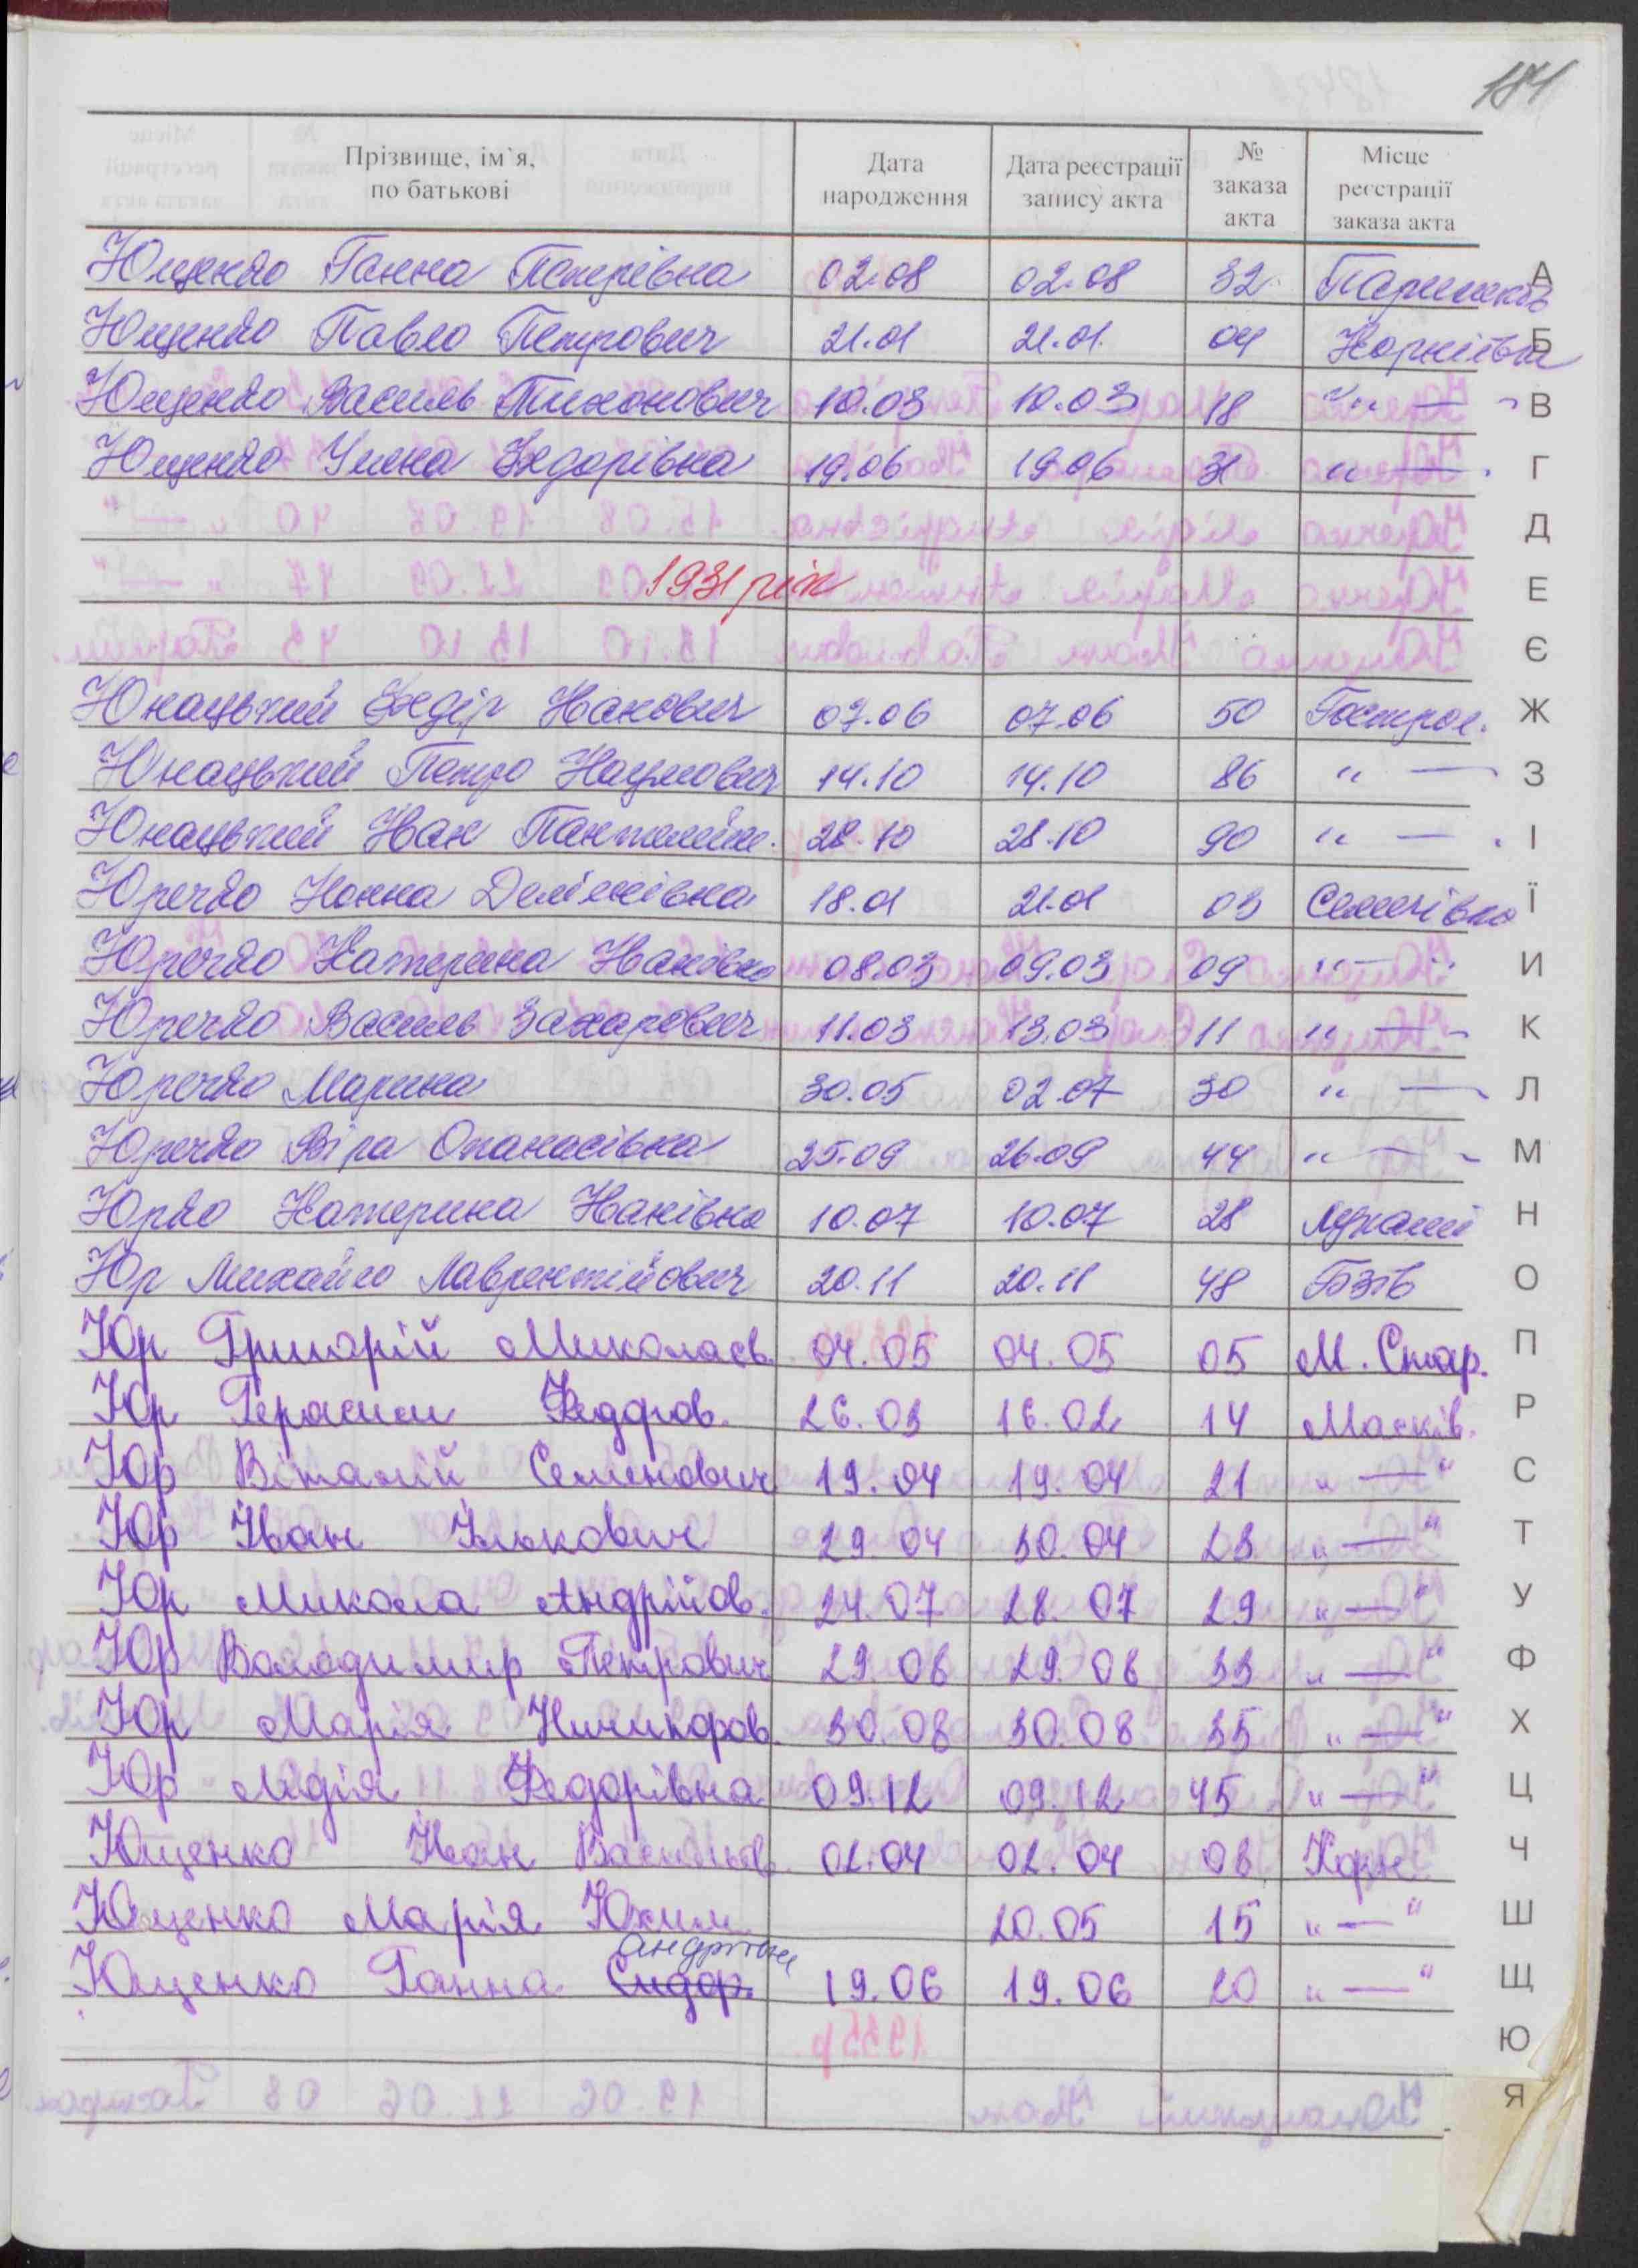 184
Прізвище, ім`я, по батькові Дата народження Дата реєстрації запису акта № заказа акта Місце реєстрації заказа акта
Ющенко Ганна Петрівна 02.08 02.08 32 А
Ющенко Павло Петрович 21.01 21.01. 04 Корніївка Б
Ющенко Василь Тихонович 10.03 10.03 18 " — " В
Ющенко Уляна Федорівна 19.06 19.06 31 " — " Г
Д
1931 рік Е
Є
Юнацький Федір Іванович 07.06 07.06 50 Гострол. Ж
Юнацький Петро Наумович 14.10 14.10 86 " — З
Юнацький Іван Пантелейм. 28.10 28.10 90 " — " І
Юречко 18.01 21.01 03 Семенівка Ї
Юречко Катерина Іванівна 08.03 09.03 09 " — " И
Юречко Василь Захарович 11.03 13.03 11 " — К
Юречко Марина 30.05 02.07 30 " — Л
Юречко Віра Опанасівна 25.09 26.09 44 " — М
Юрко Катерина Іванівна 10.07 10.07 28 Н
Юр Михайло Лаврентійович 20.11 20.11 48 Бзів О
Юр Григорій Миколаєв. 04.05 04.05 05 М. Стар. П
Юр Герасим Федоров. 26.03 16.02 14 Масків. Р
Юр Віталій Семенович 19.04 19.04 21 " — " С
Юр Іван Ількович 29.04 30.04 23 " — " Т
Юр Микола Андрійов. 24.07 28.07 29 " — " У
Юр Володимир Петрович 29.08 29.08 33 " — " Ф
Юр Марія Ничипоров. 30.08 30.08 35 " — " Х
Юр Лідія Федорівна 09.12 09.12 45 " — " Ц
Ющенко Іван Васильов. 02.04 02.04 08 Корн. Ч
Ющенко Марія Юхим. 20.05 15 " — " Ш
Андріївна
Ющенко Ганна Сидор. 19.06 19.06 20 " — " Щ
Ю
Я